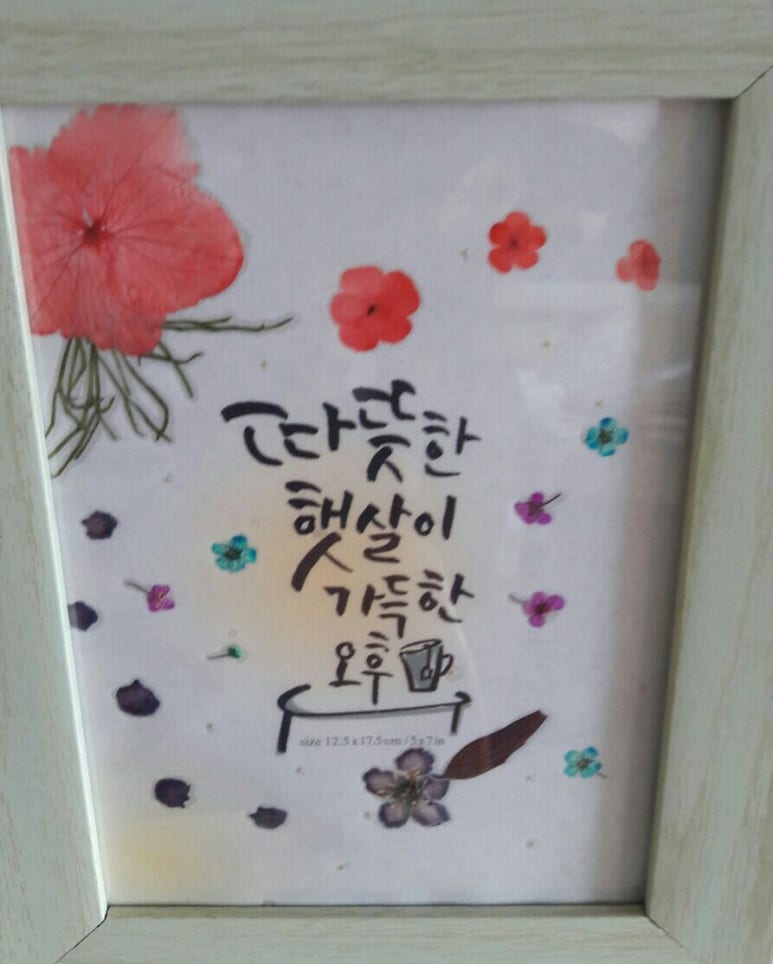 따뜻한
햇살이
가득한
오후
size 12.5x17.5cm/5x7in